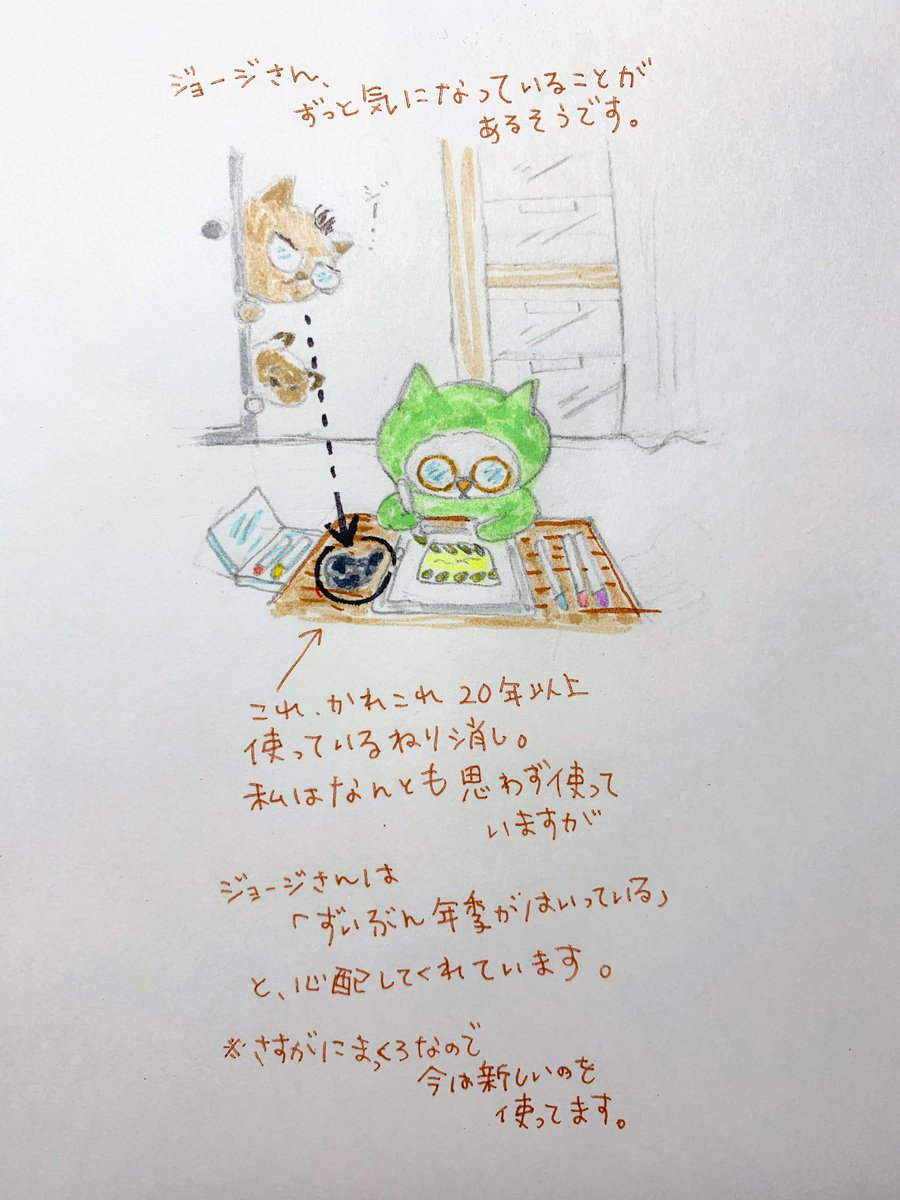 ジョージさん、
ずっと気になっていることが
あるそうです。
ジー…
これ、かれこれ 20年以上
使っているねり消し。
私はなんとも思わず使って
いますが
ジョージさんは
「ずいぶん年季がはいっている」
と、心配してくれています。
※さすがにまっくろなので
今は新しいのを
使ってます。